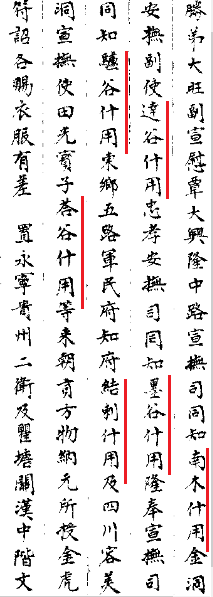 勝弟大旺副宣慰覃大興隆中路宣撫司同知南木什用金洞
安撫副使達谷什用忠孝安撫司同知墨谷什用隆奉宣撫司
同知驢谷什用東鄉五路軍民府知府結剌什用及四川容美
洞宣撫使田光寳子荅谷什用等来朝貢方物納元所授金虎
符詔各賜衣服有差 置永寧貴州二衛及瞿塘關漢中階文